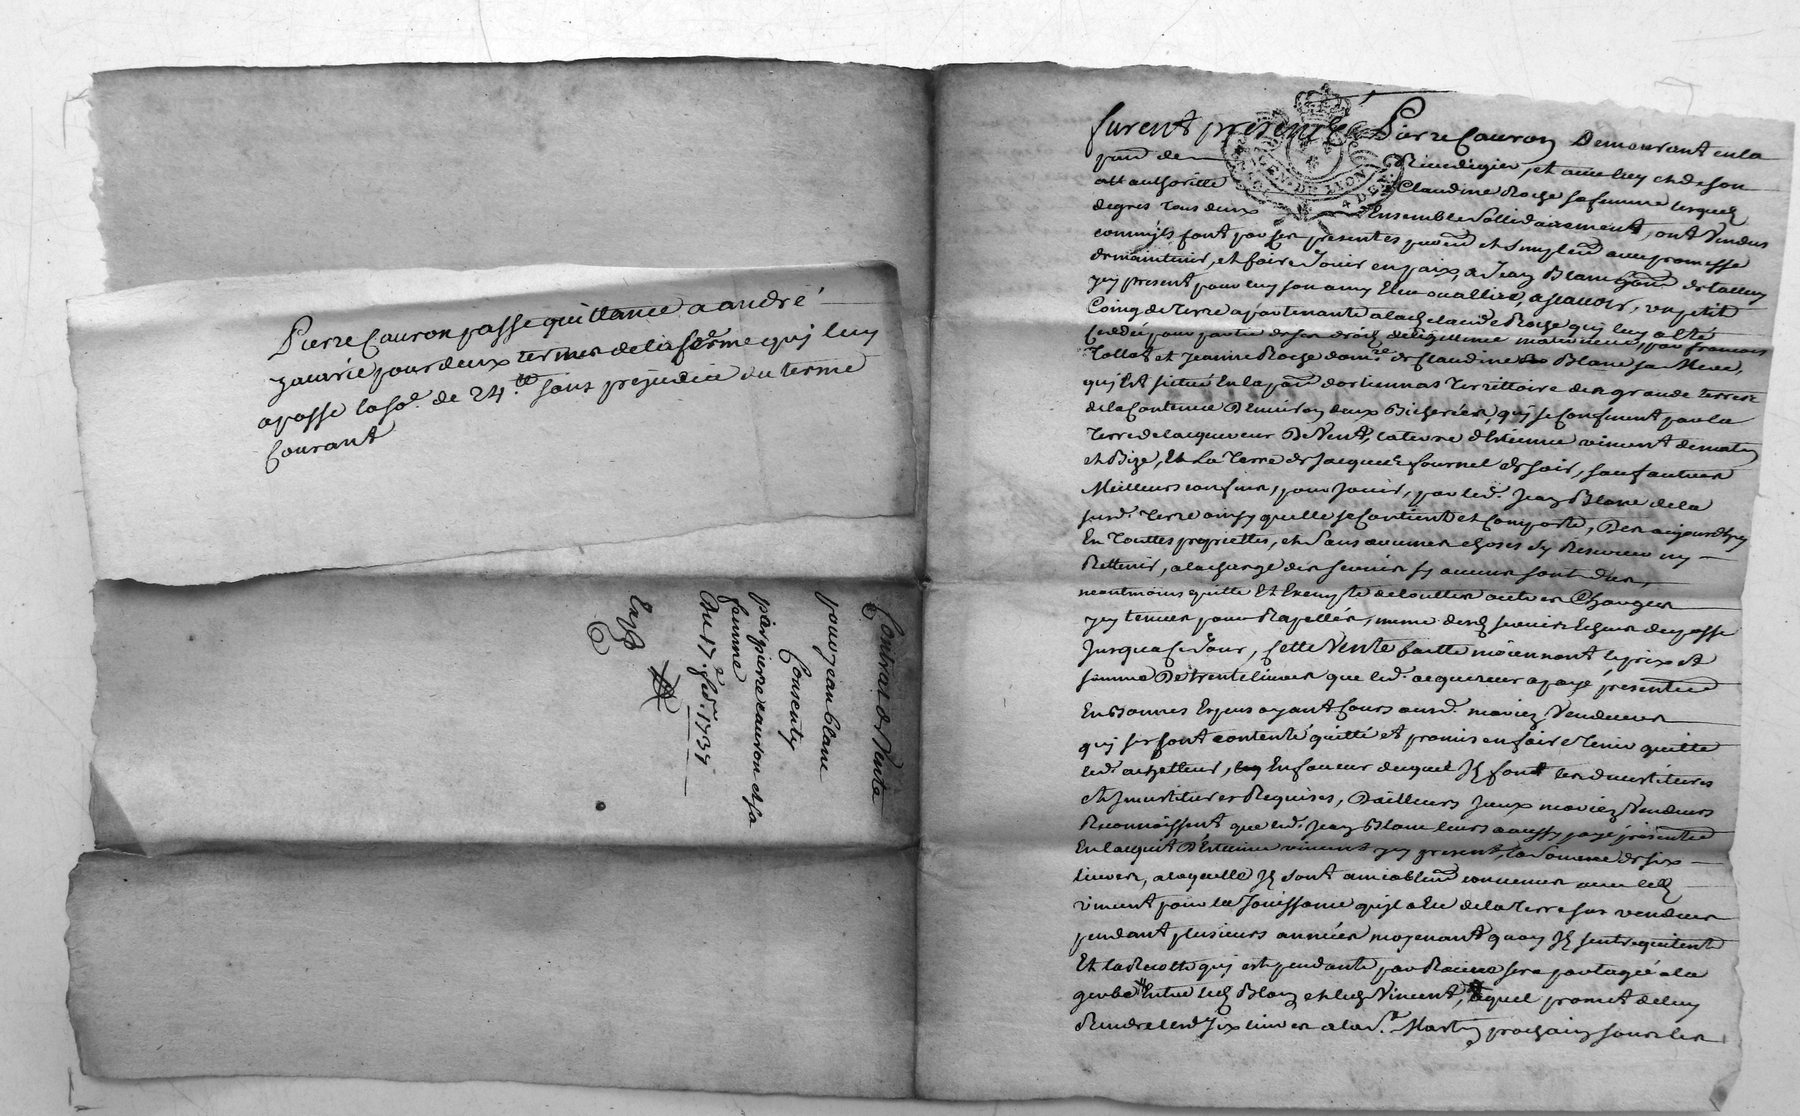 Pierre Cauron passe quittance a andré
pour deux termes de la ferme quj luy
a passé la so.e de 24.tt sans prejudice du terme
Courant
Contrat de Vente
pour jean blanc
Consenty
par pierre cauron et sa
femme
Du 17.e fed.r 1734
Exp
GEN. DE LYON
furent presents Pierre Cauron Demeurant en la
parr. de Riverdigier, et avec luy et de son
authoritté Claudine Roche sa femme lesquels
degres tous deux Ensemble sollidairement, ont Vendus
comm'jls font par ses presentes purem.t et simplem.t avec promesse
de maintenir, et faire Jouir en paix, a Jean Blanc
jcy present pour luy son amy Eleu ou allier, a scavoir, un petit
Coing de terre apartenante a lad. claudine Roche quj luy a été
Ceddé pour partie de ses droits de legitime maternels, par francois
et jeanne Roche de Claudine Blanc sa Mere,
quj Est situé En la parr. territtoire de la grande terre
de la Contenue D'environ deux Bicherées, quj se Confinent par la
terre de lacquereur De Vent, la terre d'Estienne vincent de matin
et Bize, Et La terre de Jacques fournel de soir, sauf autres
Meilleurs confins, pour jouir, par led. Jean Blanc de la
susd. terre ainsy quelle se Contient et Comporte, Des aujourdhuy
En touttes proprietées, et sans aucunes choses s'y Reserver ny
Rettenir, a la charge des servis sy aucuns sont dus,
neantmoins quitte Et Exempte de touttes autres Charges
jcy tenues pour Rapellées, meme desd. servis Echeus du passé
Jusqua ce Jour, Cette Vente faitte moiennant le prix et
somme De trente livres que led. acquereur a payé présentem.t
En Bonnes Especes ayant Cours ausd. mariez Vendeurs
quj s'en sont contenté quitté et promis en faire tenir quitte
led. achetteur, En faveur duquel Jls font les devestitures
et Jnvestitures Requises, D'ailleurs jceux mariez Vendeurs
Reconnoissent que led. Jean Blanc leurs a aussy payé présentem.t
En lacquit D'Estienne vincent jcy present, la Somme de six
livres, a laquelle Jls sont amiablem.t convenus avec led.
vincent pour la Jouissance quil a Eue de la terre sus vendue
pendant plusieurs années moyenant quoy Jls sentrequittent
Et la Recolte quj est pendante par Racine sera partagée a la
gerbe Entre led. Blanc et led. Vincent, lequel promet de luy
Rendre lesd. six livres a la S.t Martin prochain sous les